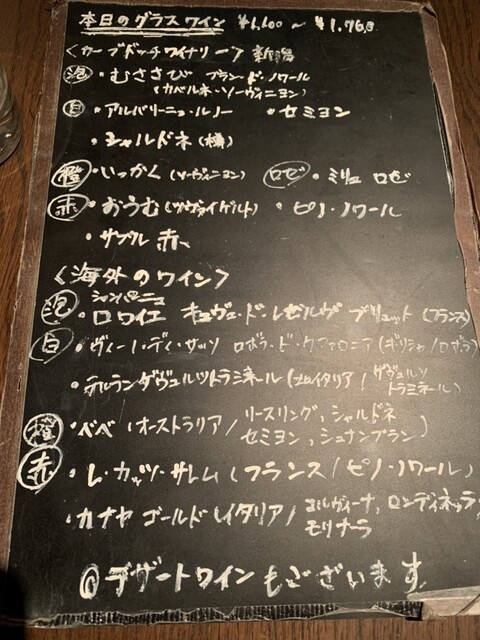 本日のグラスワイン ¥1,100 ～ ¥1,760
〈カーブドッチワイナリー〉 新潟
泡 ・むささび ブラン・ド・ノワール
(カベルネ・ソーヴィニヨン)
白 ・アルバリーニョ・ルノー ・セミヨン
・シャルドネ (樽)
橙 ・いっかく (ソーヴィニヨン) ロゼ ・ミリュ ロゼ
赤 ・おうむ (ツヴァイゲルト) ・ピノ・ノワール
・サブル 赤
〈海外のワイン〉
泡 シャンパーニュ
・ロワイエ キュヴェ・ド・レゼルヴ ブリュット (フランス)
白 ・ヴィーノ・ディ・サッソ ロボラ・ド・ケファロニア (ギリシャ/ロボラ)
・テルラン ゲヴュルツトラミネール (北イタリア/ゲヴュルツ
トラミネール)
橙 ・ベベ (オーストラリア/リースリング, シャルドネ
セミヨン, シュナンブラン)
赤 ・レ・カッツ・サレム (フランス/ピノ・ノワール)
・カナヤ ゴールド (イタリア/コルヴィーナ, ロンディネッラ
モリナーラ
◎デザートワインもございます